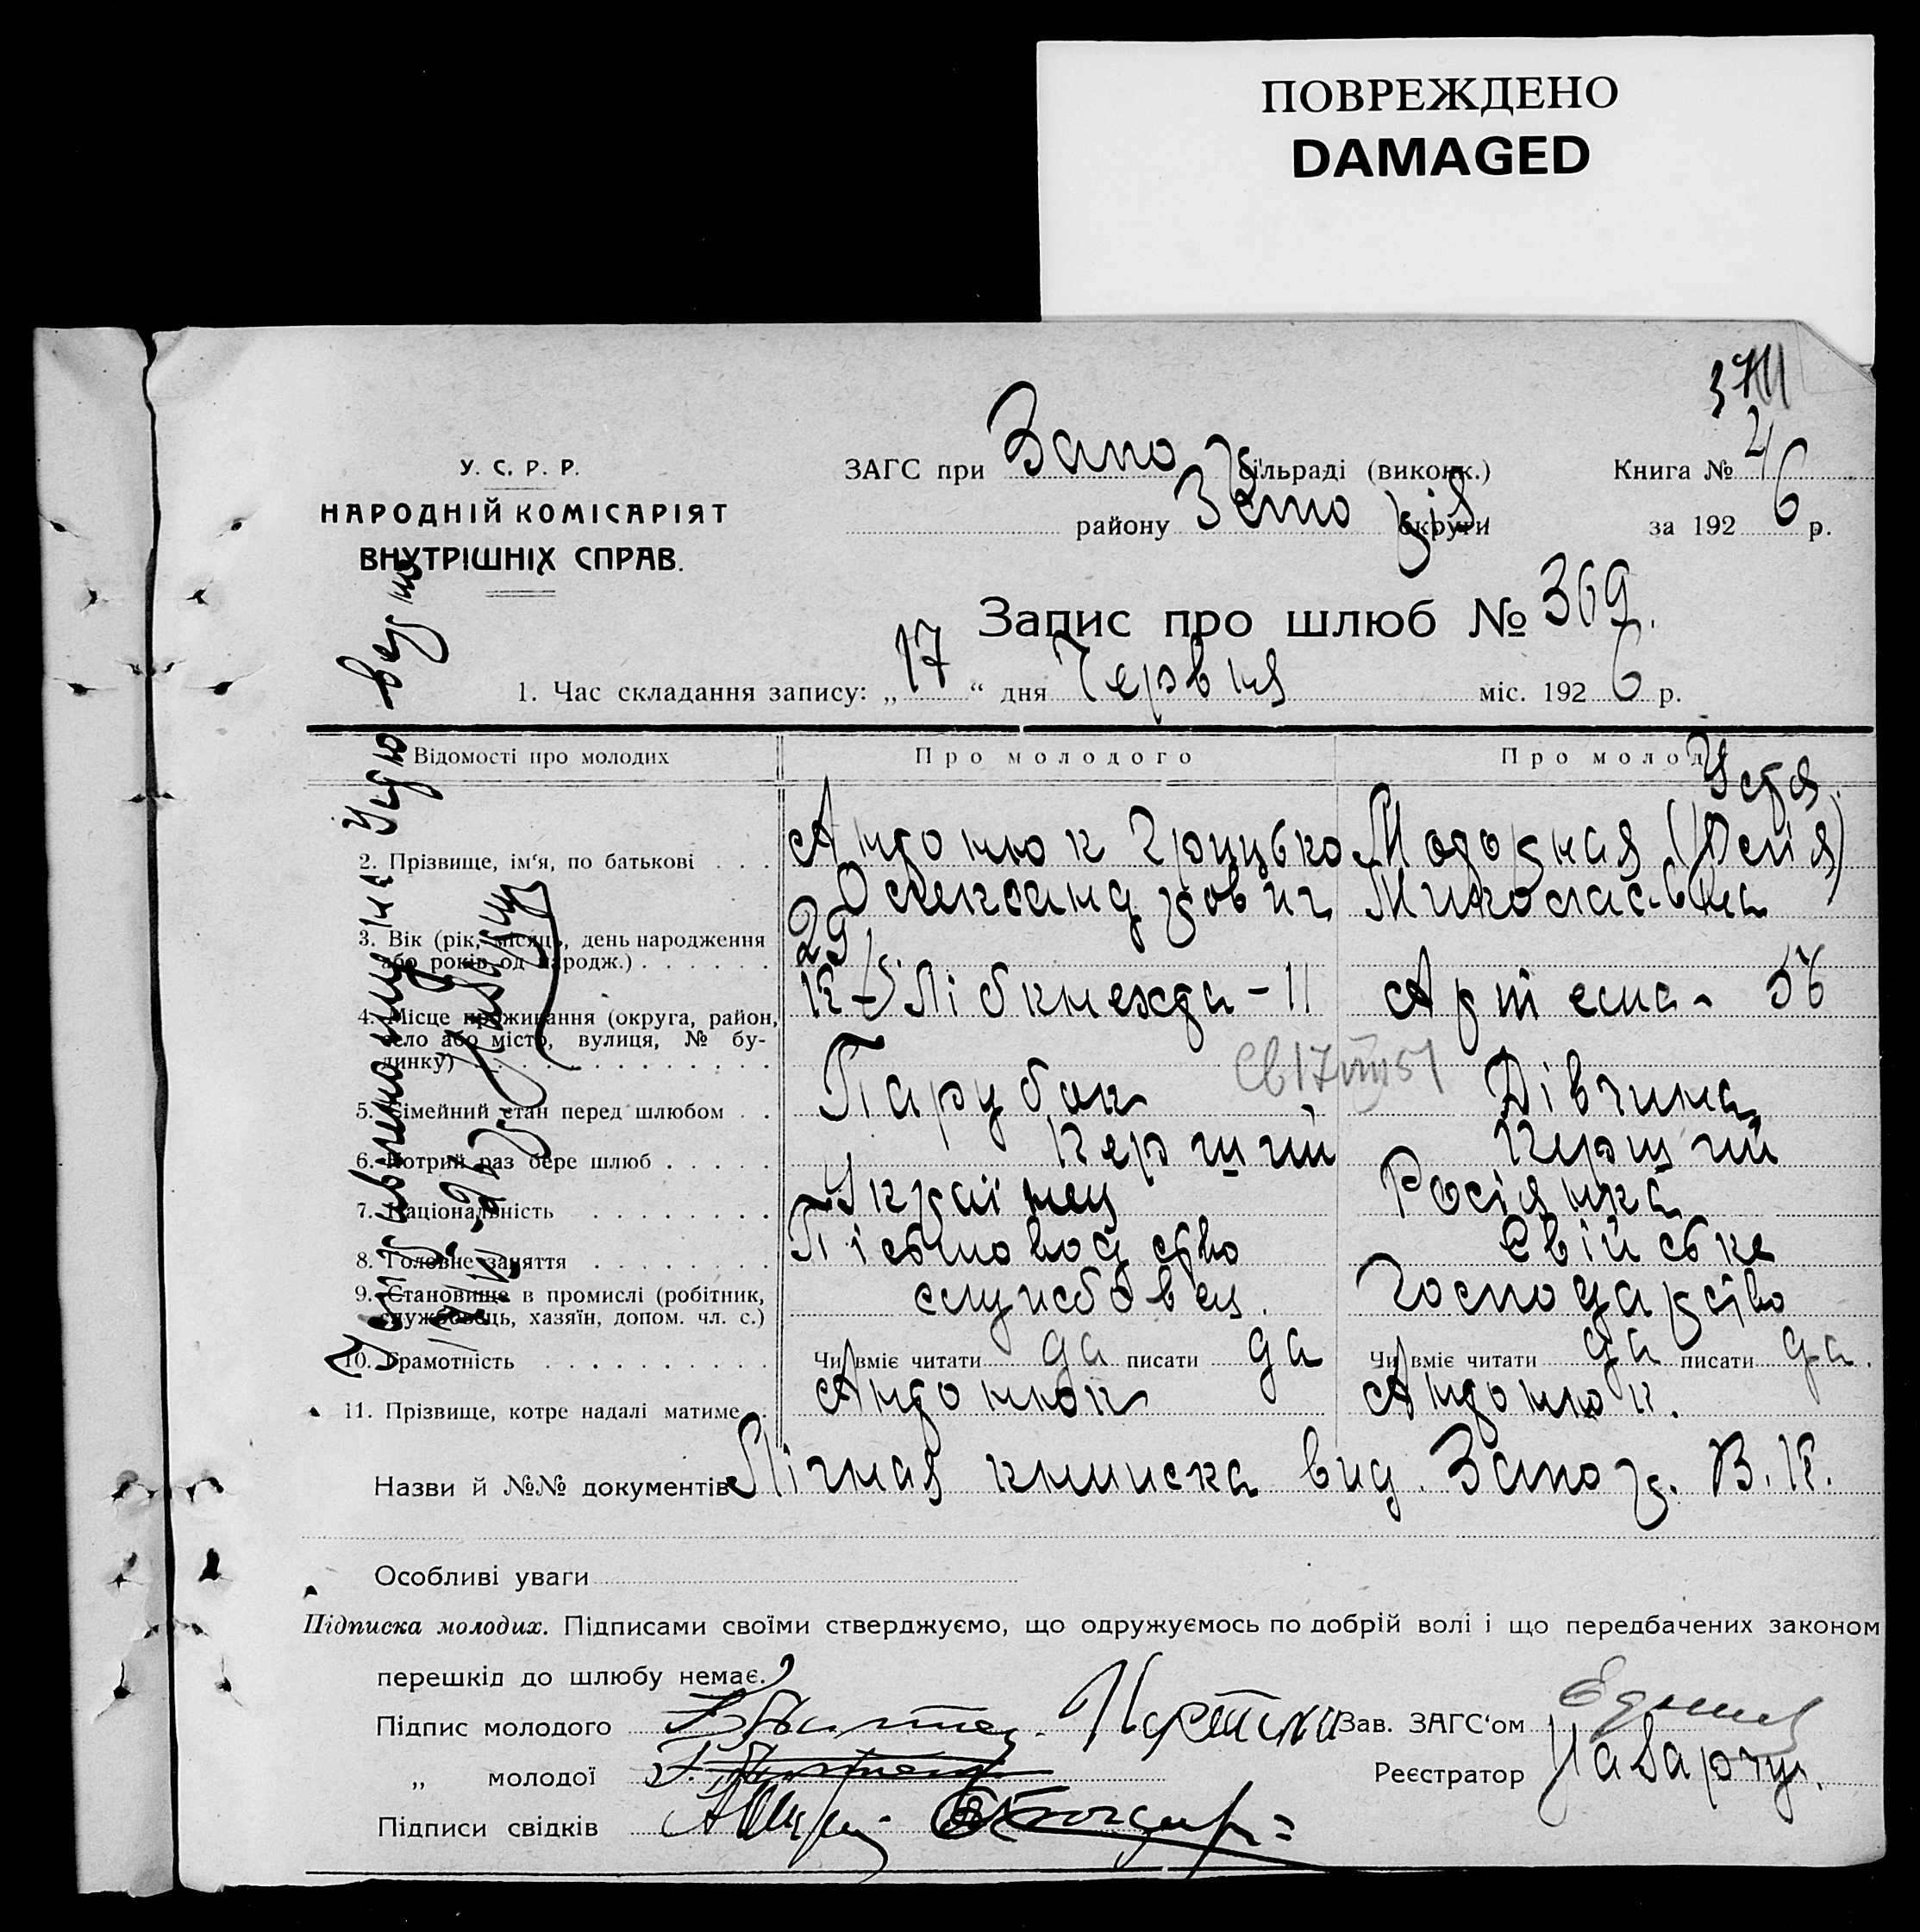 ПОВРЕЖДЕНО
DAMAGED
У. С. Р. Р.
НАРОДНІЙ КОМІСАРІЯТ
ВНУТРІШНІХ СПРАВ.
ЗАГС при Запо сільраді (виконк.) Книга № 4
району Запоріз округи за 1926 р.
Запис про шлюб № 369.
1. Час складання запису: „17“ дня Червня міс. 1926 р.
Відомості про молодих Про молодого Про молод
Устя.
2. Прізвище, ім'я, по батькові Андонюк Грицько Модорная (Юстія)
Олександрович Миколаєвна
3. Вік (рік, місяць, день народження або років од народж.) 29
4. Місце проживання (округа, район, село або місто, вулиця, № будинку) К-Лібкнехта-11 Артема- 56
5. Сімейний стан перед шлюбом Парубок Дівчина
6. Котрий раз бере шлюб Перший Перший
7. Національність Українец Росіянка
8. Головне заняття Пісьмоводство Свійське
9. Становище в промислі (робітник, службовець, хазяїн, допом. чл. с.) службовец. господарство
10. Грамотність Чи вміє читати да писати да Чи вміє читати да писати да.
11. Прізвище, котре надалі матиме Андонюк Андонюк.
Назви й №№ документів Лічная книжка вид. Запор. В.К.
Особливі уваги
Підписка молодих. Підписами своїми стверджуємо, що одружуємось по добрій волі і що передбачених законом
перешкід до шлюбу немає.
Підпис молодого Зав. ЗАГС'ом
„ молодої Реєстратор
Підписи свідків